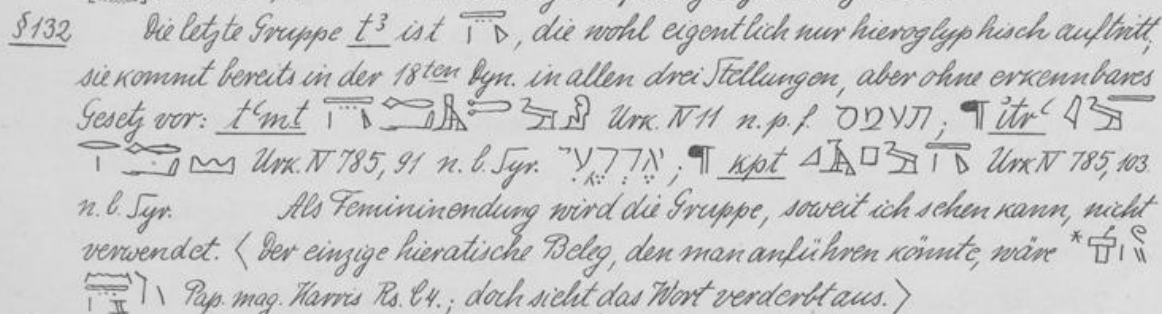 §132 Die letzte Gruppe t³ ist , die wohl eigentlich nur hieroglyphisch auftritt,
sie kommt bereits in der 18ten Dyn. in allen drei Stellungen, aber ohne erkennbares
Gesetz vor: tꜥmṯ Urk. IV 11 n. p. f. תעמס; ¶ itrꜥ
Urk. IV 785, 91 n. l. Syr. ; ¶ kpt Urk IV 785, 103
n. l. Syr. Als Femininendung wird die Gruppe, soweit ich sehen kann, nicht
verwendet. 〈 Der einzige hieratische Beleg, den man anführen könnte, wäre *
Pap. mag. Harris Rs. C4.; doch sieht das Wort verderbt aus. 〉